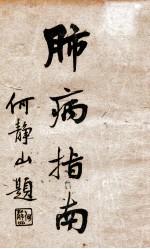 肺病指南
何靜山題